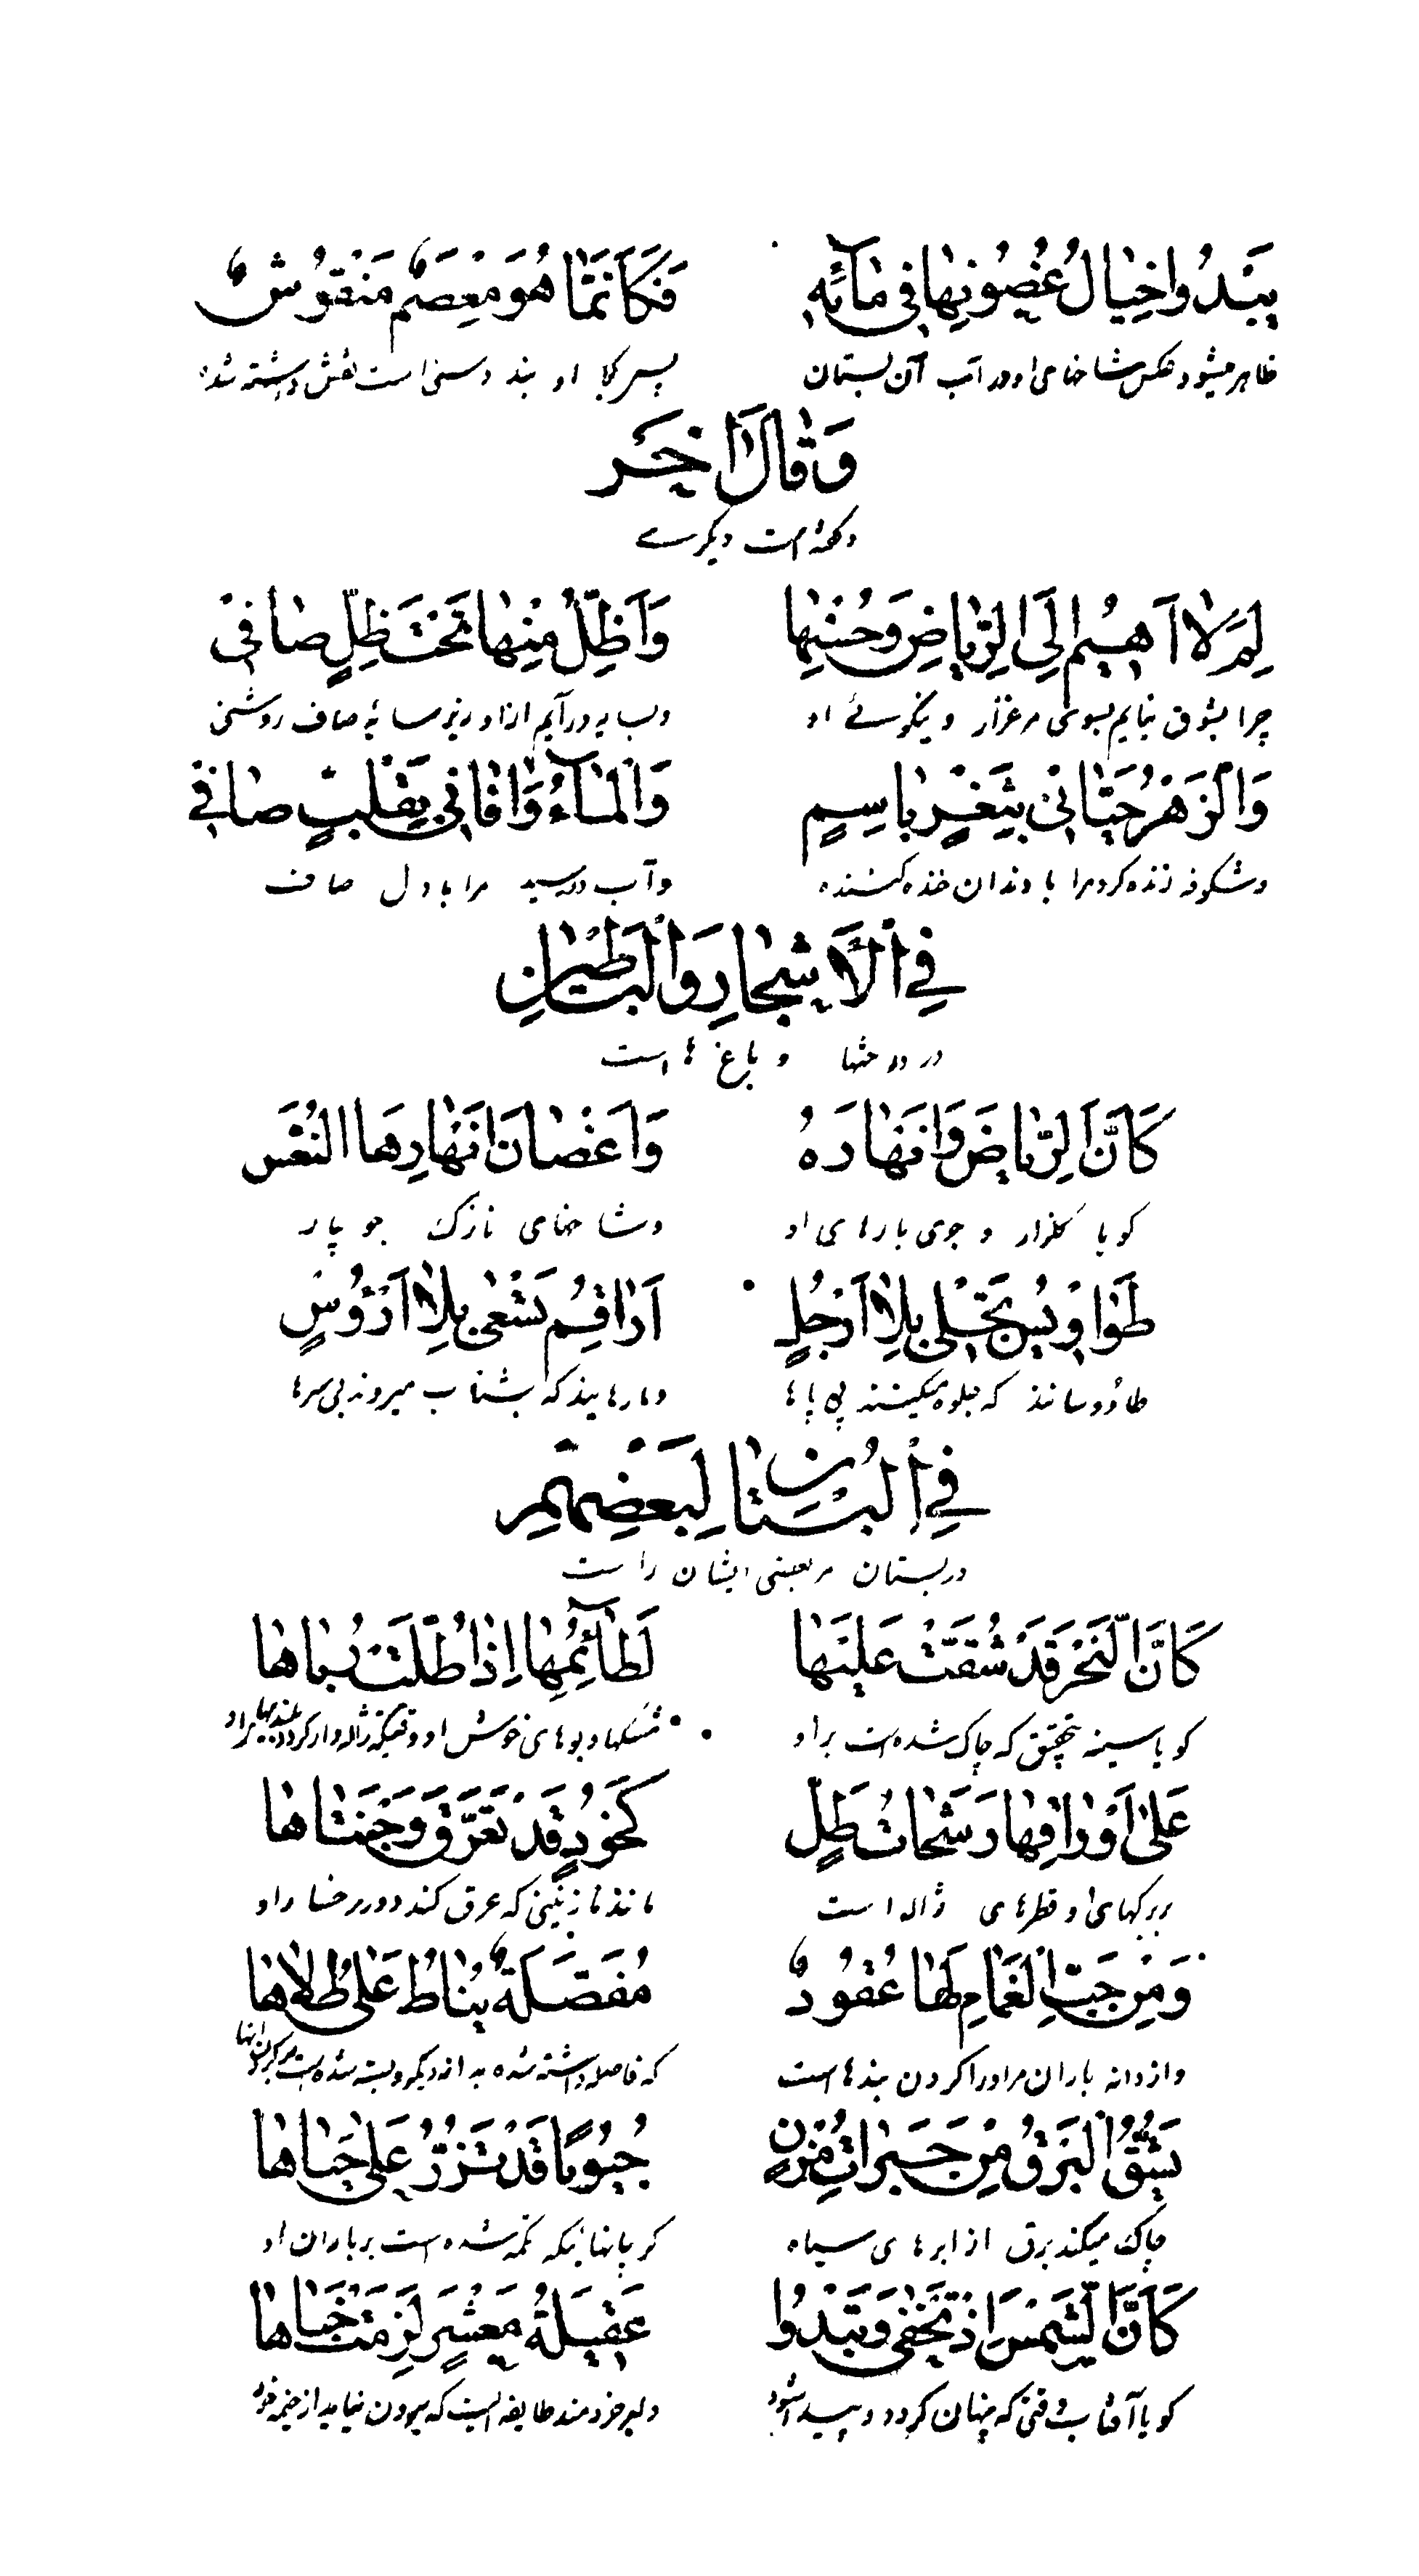 يَبْدُوا خِيَالُ غُصُونِهَا فِي مَائِهِ فَكَأَنَّمَا هُوَ مِعْصَمٌ مَنْقُوشٌ
ظاهر میشود عکس شاخهای او در آب آن بستان پس گویا او بند دستی است نقش داشته شد
وَقَالَ اٰخَر
و گفته است دیگرے
لِمَ لَا اَهِيمُ اِلَى الرِّيَاضِ وَحُسْنِهَا وَاَظَلُّ مِنْهَا تَحْتَ ظِلٍّ صَافِي
چرا بشوق نیایم بسوی مرغزار و نیکوئے او و در آیم ازو در زیر سایهٔ صاف روشنی
وَالزَّهْرُ حَيَّانِي بِثَغْرٍ بَاسِمٍ وَالْمَآءُ وَافَانِي بِقَلْبٍ صَافِي
و شکوفه زنده کرد مرا با دندان خنده کننده و آب در رسید مرا با دل صاف
فِي الْاَشْجَارِ وَالْبَسَاطِيْنِ
در درختها و باغ ها است
كَاَنَّ الرِّيَاضَ وَاَنْهَارَهُ وَاَغْصَانَ اَنْهَارِهَا النُّعَّسِ
گویا گلزار و جوی بارهای او و شاخهای نازک جو یار
طَوَاوِيسُ تَجْلٰى بِلَا اَرْجُلٍ اَرَاقِمُ تَسْعٰى بِلَا اَرْؤُسٍ
طاؤوسانند که جلوه میکنند بی پا ها و مارهایند که بشتاب میروند بی سرها
فِي الْبُسْتَانِ لِبَعْضِهِمْ
در بستان مر بعضی ایشان را ست
كَاَنَّ النَّحْرَ قَدْ شُقَّتْ عَلَيْهَا لَطَائِمُهَا اِذَا طُلَّتْ رُبَاهَا
گویا سینه بتحقیق که چاک شده است بر او مشکها و بوهای خوش او وقتیکه ژاله دار گردد بلندیها
عَلٰى اَوْرَاقِهَا رَشَحَاتُ طَلٍّ كَخَوْدٍ قَدْ تَعَرَّقَ وَجْنَتَاهَا
بر برگهای او قطرهای ژاله است مانند نازنینی که عرق کند دو رخسار او
وَمِنْ حَبِّ الْغَمَامِ لَهَا عُقُودٌ مُفَصَّلَةٌ يُنَاطُ عَلٰى طُلَاهَا
و از دانه باران مر او را گردن بندها است که فاصله داشته شده بدانه دیگر و بسته شده است بر گردن آنها
يَشُقُّ الْبَرْقُ مِنْ حَبَرَاتِ مُزْنٍ جُيُوبًا قَدْ تَزَرُّ عَلٰى حَيَاهَا
چاک میکند برق از ابرهای سیاه گریبانهائیکه تکمه شده است بر باران او
كَاَنَّ الشَّمْسَ اِذْ تَخْفٰى وَتَبْدُوا عَقِيلَةُ مَعْشَرٍ لَزِمَتْ خِبَاهَا
گویا آفتاب وقتی که پنهان گردد و پیدا شود دلبر خردمند طایفه ایست که بیرون نیاید از خیمه خود